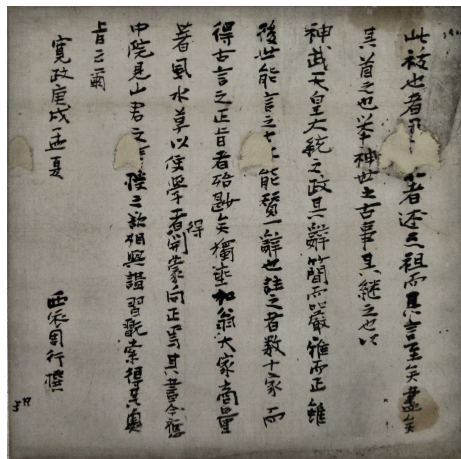 此祓也者
者述之祖而其言至矣盡矣
其首之也举神世之古事其継之也以
神武天皇大統之政其辞簡而嚴雅而正雖
後世能言之士不能賛一辞也註之者数十家而
得古言之正旨者殆尠矣獨垂加翁大家商量
著風水草以使學者得開蒙向正焉其書今應
中院見山君之
慢之欲相與講習
得其奥
旨云爾
寛政庚戌孟夏
西
行